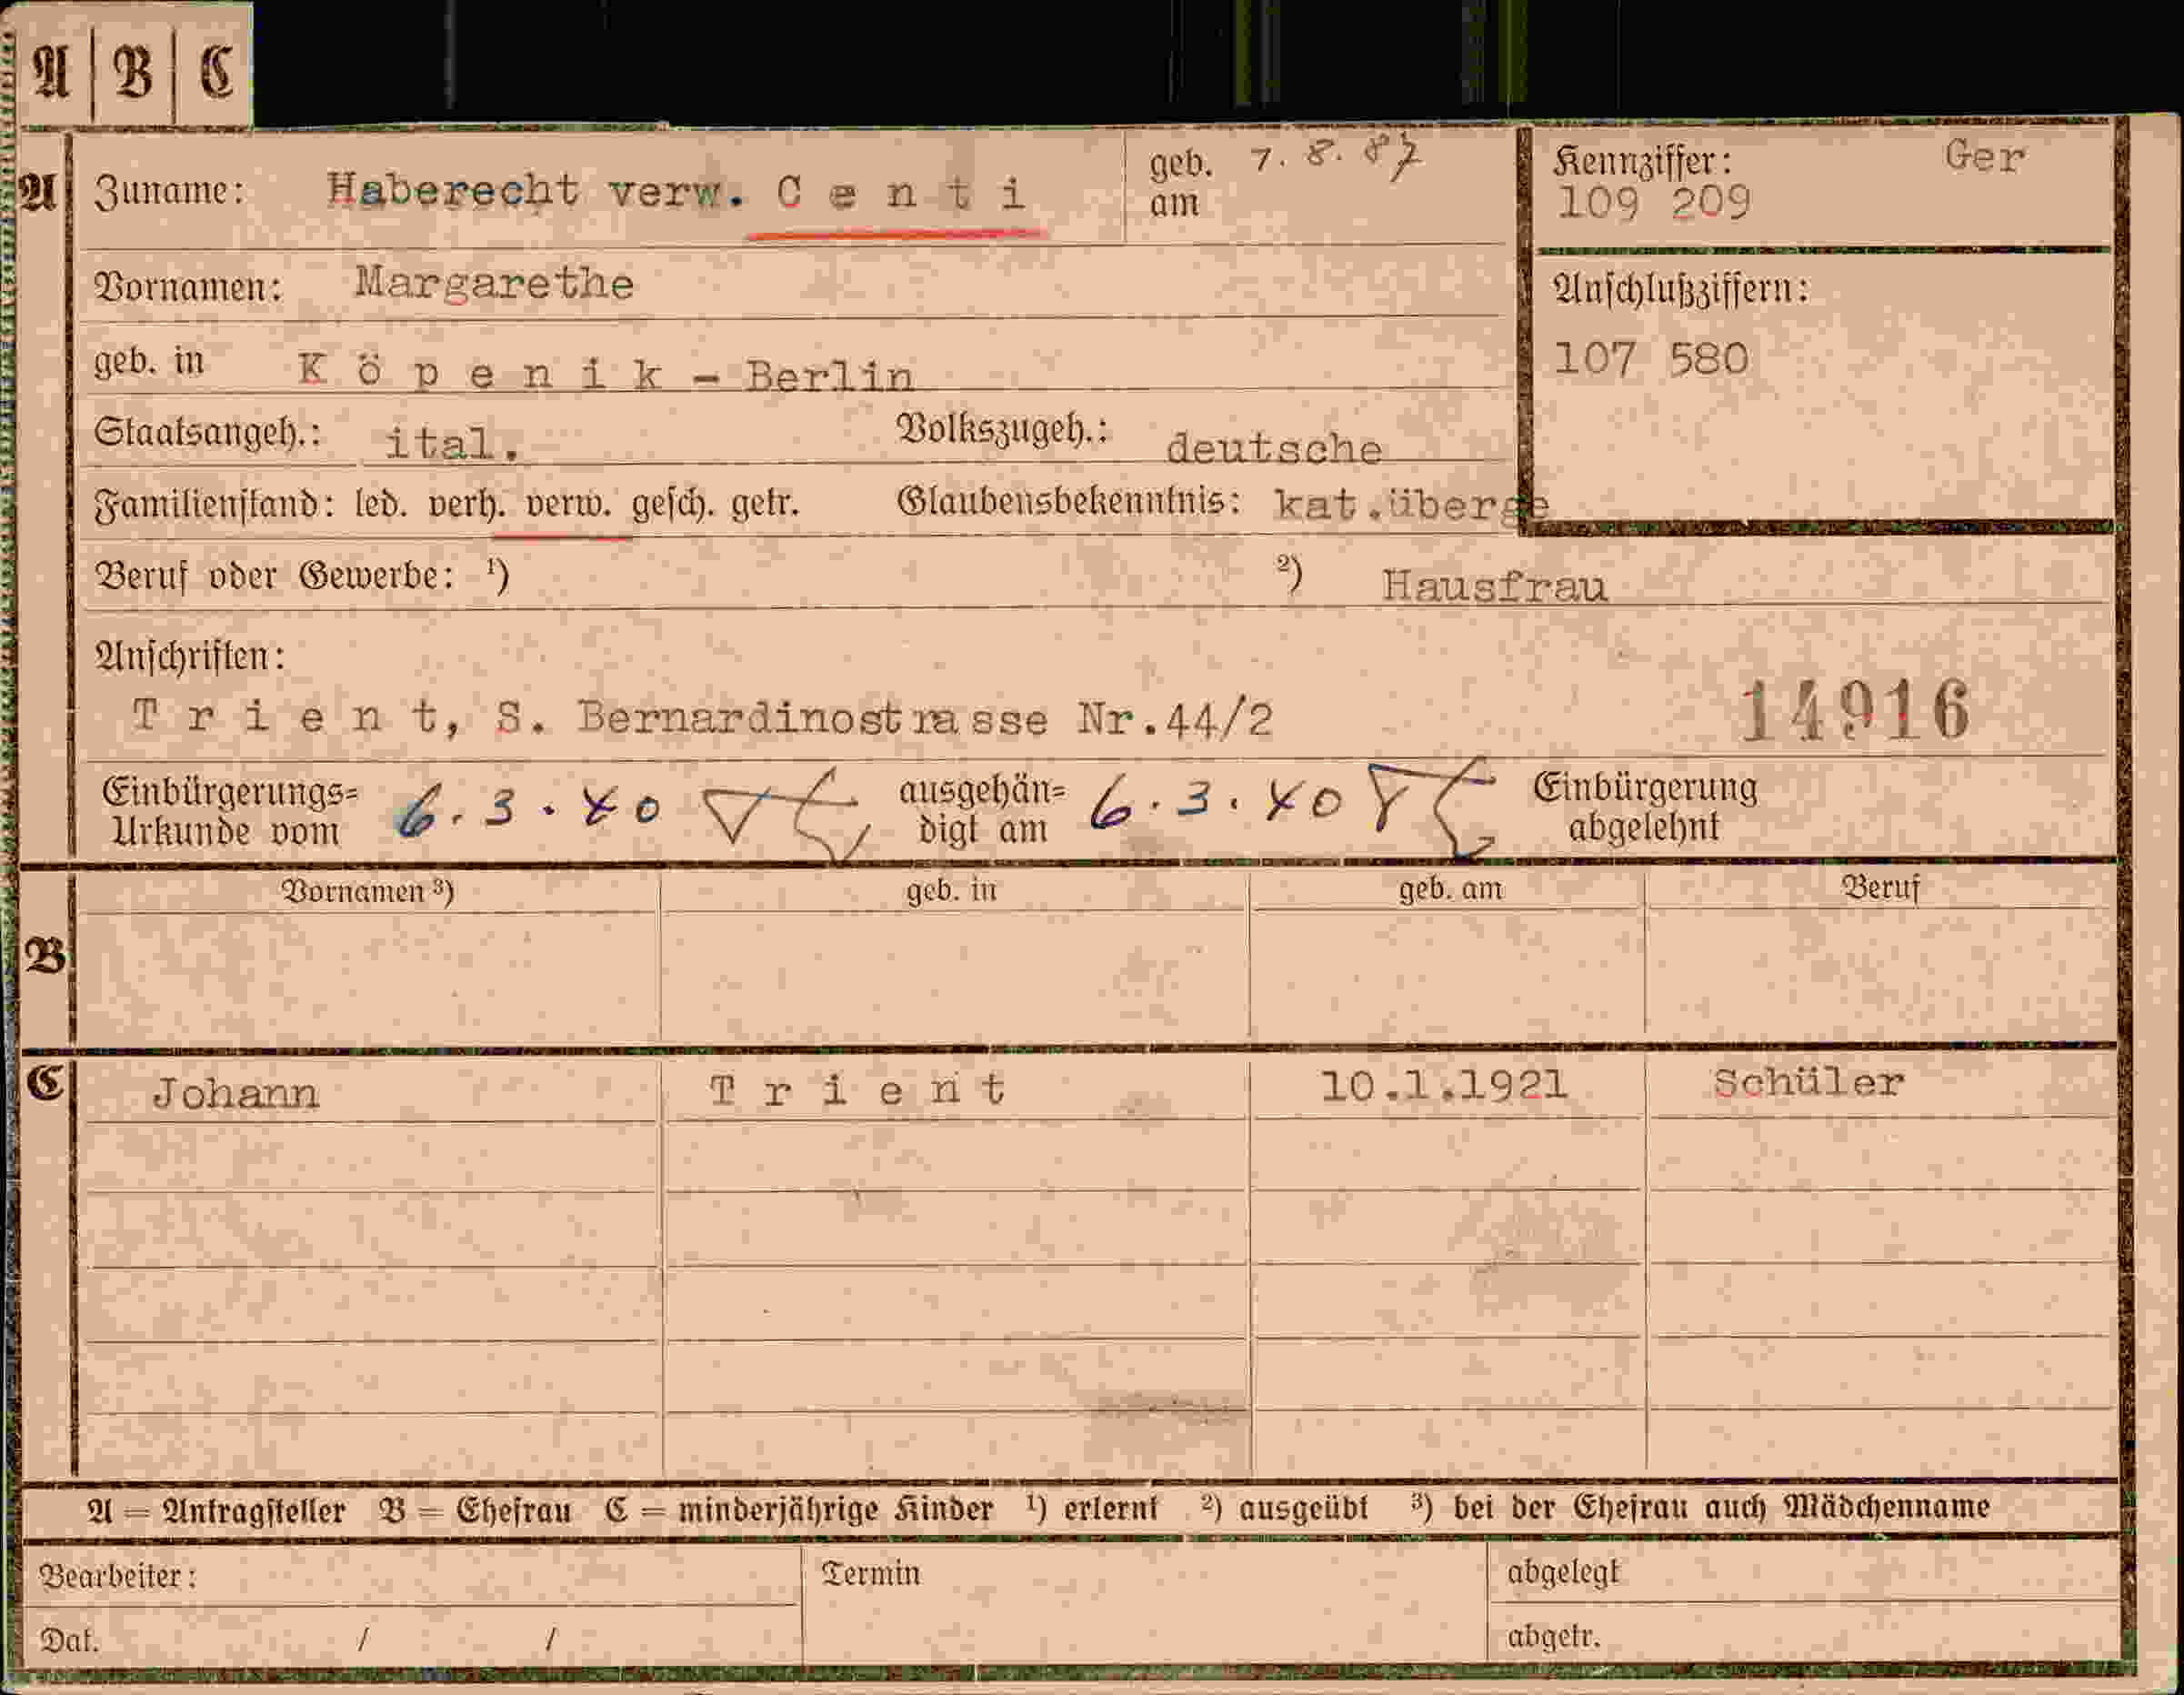 A B C
A Zuname: Haberecht verw. C e n t i geb. am 7. 8. 87 Kennziffer: Ger
109 209
Vornamen: Margarethe Anschlußziffern:
geb. in K ö p e n i k - Berlin 107 580
Staatsangeh.: ital. Volkszugeh.: deutsche
Familienstand: led. verh. verw. gesch. getr. Glaubensbekenntnis: kat.überge
Beruf oder Gewerbe: ¹) ²) Hausfrau
Anschriften:
T r i e n t, S. Bernardinostrasse Nr.44/2 14916
Einbürgerungs= Urkunde vom 6.3.40 ausgehän= digt am 6.3.40 Einbürgerung abgelehnt
Vornamen ³) geb. in geb. am Beruf
B
C Johann T r i e n t 10.1.1921 Schüler
A = Antragsteller B = Ehefrau C = minderjährige Kinder ¹) erlernt ²) ausgeübt ³) bei der Ehefrau auch Mädchenname
Bearbeiter: Termin abgelegt
Dat. / / abgetr.